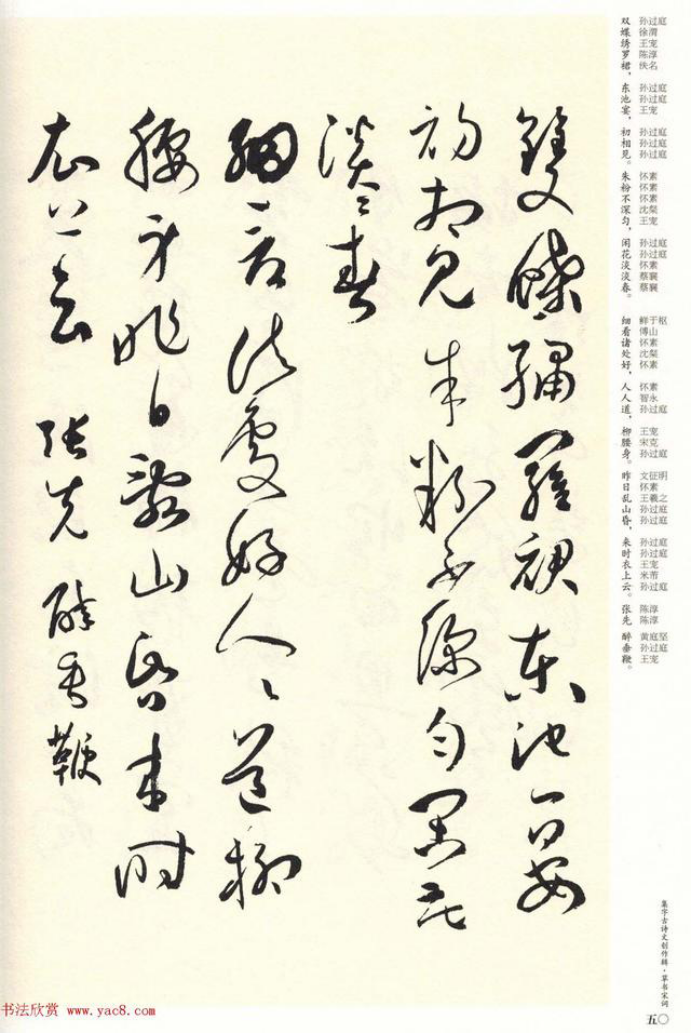 雙蝶繡羅裙東池宴
初相見朱粉不深勻閑花
淡〻春
細看諸處好人〻道柳
腰身昨日亂山昏來時
衣上雲 張先 醉垂鞭
孙过庭 徐渭 王宠 陈淳 佚名 孙过庭 孙过庭 王宠 孙过庭 孙过庭 孙过庭 怀素 怀素 怀素 沈粲 王宠 孙过庭 孙过庭 怀素 蔡襄 蔡襄 鲜于枢 傅山 怀素 沈粲 怀素 怀素 智永 孙过庭 王宠 宋克 孙过庭 文征明 怀素 王羲之 孙过庭 孙过庭 孙过庭 孙过庭 王宠 米芾 孙过庭 陈淳 陈淳 黄庭坚 孙过庭 王宠
双蝶绣罗裙，东池宴，初相见。朱粉不深匀，闲花淡淡春。 细看诸处好，人人道，柳腰身。昨日乱山昏，来时衣上云。 张先 醉垂鞭。
集字古诗文创作辑·草书宋词
五〇
书法欣赏 www.yac8.com